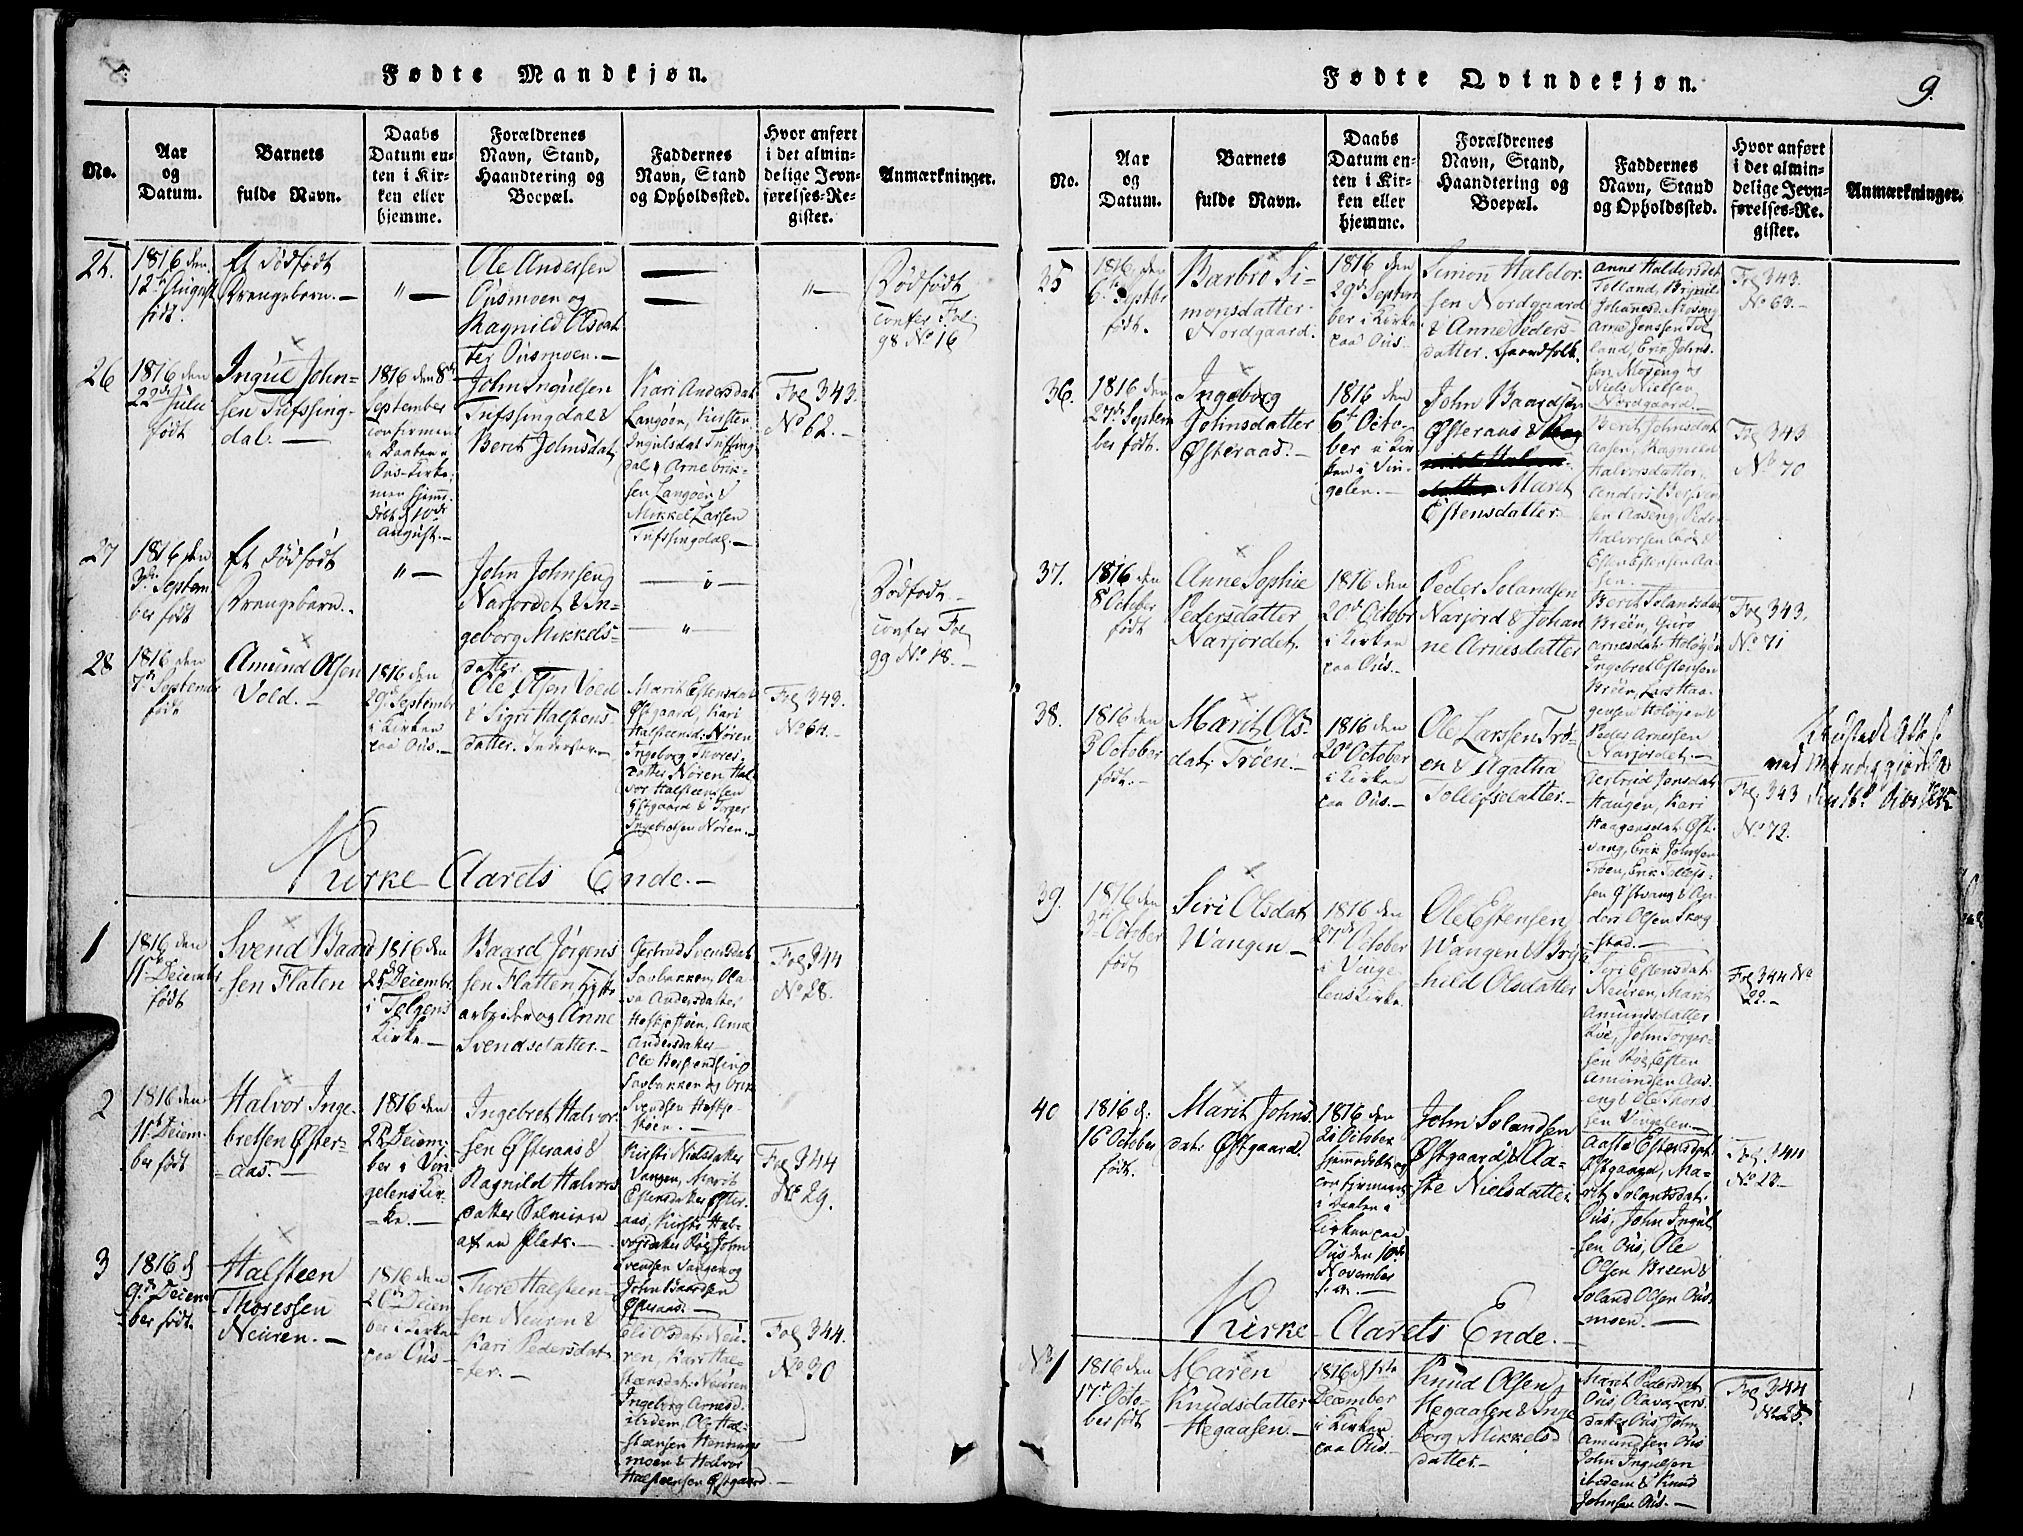 Fødte Mandkjøn.
No.
Aar
og
Datum.
Barnets
fulde Navn.
Daabs
Datum en-
ten i Kir-
ken eller
hjemme.
Forældrenes
Navn, Stand,
Haandtering og
Boepæl.
Faddernes
Navn, Stand
og Opholdssted.
Hvor anført
i det almin-
delige Jevn-
førelses-Re-
gister.
Anmærkninger.
1816 den
12te August
født.
Et Dødfødt
Drengebarn. —
" —
Ole Andersen
Ousmoen og
Ragnild Olsdat
ter Ousmoen. —
" —
Dødfødt
confer Fol
98 No 16
26
1816 den
22de Julii
født
Ingul John-
sen Tufssing-
dal. —
1816 den 8de
September
confirmert
Daaben i
Ous Kirke,
men hjem
døbt d 10de
August. —
John Ingulsen
Tufssingdal &
Berit Johnsdat
Kari Andersdat
Langøen, Kirsten
Ingulsdat Tufssing
dal, Arne Erik-
sen Langøen &
Mikkel Larsen
Tufssingdal. —
Fol 343.
No 62. —
27
1816 den
3die Septem
ber født
Et Dødfødt
Drengebarn.
" —
John Johnsen
i Narjordet & In-
geborg Mikkels-
datter.
— " —
— " —
Dødfødt
confer Fol
99 No 18. —
28
1816 den
7de Septembr
født
Amund Olsen
Vold. —
1816 den
29de Septembr
i Kirken
paa Ous. —
Ole Olsen Vold
& Sigri Halstens-
datter. Inderster. —
Marit Estensdat
Østgaard, Kari
Halsteensd: Nøren
Ingeborg Thores-
datter Nøren Hal-
vor Halsteensen
Østgaard & Torger
Ingebretsen Nøren. —
Fol 343.
No 64. —
Kirke Aarets Ende. —
1
1816 den
11te Decembr
født
Svend Baard
sen Flaten
1816 den
25de Decembr
i Tolgens
Kirke. —
Baard Jørgens
sen Flatten, Hytte
arbeider og Anne
Svendsdatter. —
Gertrud Svendsdat
Sagbakken, Ola-
va Andersdatter
Andersdatter
Fol 344
No 28. —
2
1816 den
11te Decem-
ber født
Halvor Inge-
bretsen Øster-
aas. —
1816 den
25de Decem-
ber i Vin-
gelens Kir-
ke. —
Ingebret Halvor
sen Østeraas &
Ragnild Halvors
datter Selveiere
af en Plads. —
Kirsti Nielsdatter
Vangen, Marit
Estensdatter Øster
aas, Kirsti Hal-
vorsdatter Røe, John
Svendsen Vangen og
John Baardsen
Østeraas. —
Fol 344
No 29.
3
1816 d
9de Decem-
ber født.
Halsteen
Thoressen
Neuren. —
1816 den
26de Decem
ber i Kirken
paa Ous —
Thore Halsteen-
sen Neuren &
Kari Pedersdat-
ter. —
Eli Olsdat: Neu-
ren, Kari Hal-
steensdat: Neuren
Ingeborg Arnesd.
ibidem, Ole Hal-
steensen Hennings
moen & Halvor
Halsteensen Østgaard —
Fol 344.
No 30
Fødte Qvindekjøn.
9.
No.
Aar
og
Datum.
Barnets
fulde Navn.
Daabs
Datum en-
ten i Kir-
ken eller
hjemme.
Forældrenes
Navn, Stand,
Haandtering og
Boepæl.
Faddernes
Navn, Stand
og Opholdssted.
Hvor anført
i det almin-
delige Jevn-
førelses-Re-
gister.
Anmærkninger.
35
1816 den
6te Septbr
født.
Barbro Si-
monsdatter
Nordgaard.
1816 den
29de Septem
ber i Kirken
paa Ous.
Simon Haldor
sen Nordgaard
& Anne Peders-
datter. Gaardfolk.
Anne Haldorsdat
Tolland,
Johannesd. Moseng
Arne Jenssen Tol
land, Erik Johns-
sen Moseng &
Niels Nielsen
Nordgaard. —
Fol 343.
No 63. —
36.
1816 den
27de Septem
ber født.
Ingeborg
Johnsdatter
Østeraas. —
1816 den
6te Octo-
ber i Kir
ken i Vin-
gelen. —
John Baardsen
Østeraas &
Marit
Estensdatter —
Berit Johnsdat
Aasen, Ragnild
Halvorsdatter,
Anders
sen Aaseng, Peder
Halvorsen &
Esten Estensen Aa-
sen. —
Fol 343
No 70
37.
1816 den
8 October
født
Anne Sophie
Pedersdatter
Narjordet.
1816 den
20de Octobr
i Kirken
paa Ous. —
Peder Solandsen
Narjord & Johan
ne Arnesdatter
Berit Solandsdat
Brèen, Guro
Arnesdat: Hologen
Ingebret Estensen
Brèen, Lars Haa-
gensen Hologen &
Peder Arnesen
Narjordet. —
Fol 343.
No 71
38.
1816 den
3 October
født. —
Marit Ols-
dat: Trøen. —
1816 den
20de October
i Kirken
paa Ous. —
Ole Larssen Trø-
en & Agatha
Tollefsdatter. —
Gertrud Jonsdat:
Haugen, Kari
Haagensdat: Øst-
vang, Erik Johnsen
Trøen, Erik Tollefs-
sen Østvang & An-
ders Olsen Skog-
stad. —
Fol 343
No 72.
39.
1816 den
3de October
født
Siri Olsdat
Vangen —
1816 den
27de October
i Vinge-
lens Kirke.
Ole Estensen
Vangen & Bryn-
hild Olsdatter
Siri Estensdat
Neuren, Marit
Amundsdatter
Røe, John Torger-
sen Røe, Esten
Amundsen Aas-
eng & Ole Thors
sen Vingelen. —
Fol 344 No
22. —
40
1816 d.
16 October
født.
Marit Johns-
dat: Østgaard.
1816 den
21 October
hjemmedøbt og
confirmeret
i Daaben i
Kirken paa
Ous den 10de
November
John Solandsen
Østgaard & Aa-
ste Nielsdatter
Aaste Estensdat:
Østgaard, Ma-
rit Solandsdat:
Ous, John Ingul-
sen Ous, Ole
Olsen Brèen &
Soland Olsen Ous-
moen. —
Fol. 344
No 23 —
Kirke-Aarets Ende. —
No 1
1816 den
17de Octo-
ber født
Maren
Knudsdatter
Hegaasen. —
1816 d 1ste
December
i Kirken
paa Ous. —
Knud Olsen
Hegaasen & Inge
borg Mikkels
datter. —
Marit Pedersdat
Ous, Olava Lars-
datter Ous, John
Amundsen Ous
John Ingulsen
ibidem & Knud
Johnsen Ous. —
Fol 344
No 25